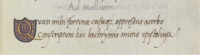 Ad Mallium
Quod mihi fortuna casuque oppressus acerbo
Conscriptum hoc lachrymis mittis epystolium